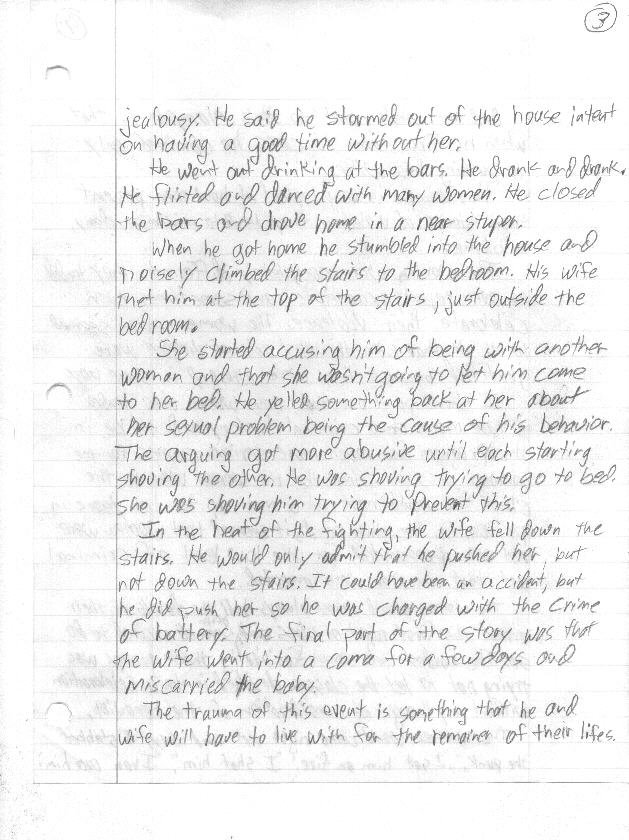 3
jealousy. He said he stormed out of the house intent
on having a good time without her.
He went out drinking at the bars. He drank and drank.
He flirted and danced with many women. He closed
the bars and drove home in a near stuper.
When he got home he stumbled into the house and
noisely climbed the stairs to the bedroom. His wife
met him at the top of the stairs, just outside the
bedroom.
She started accusing him of being with another
woman and that she wasn't going to let him come
to her bed. He yelled something back at her about
her sexual problem being the cause of his behavior.
The arguing got more abusive until each starting
shoving the other. He was shoving trying to go to bed.
She was shoving him trying to prevent this.
In the heat of the fighting, the wife fell down the
stairs. He would only admit that he pushed her, but
not down the stairs. It could have been an accident, but
he did push her so he was charged with the crime
of battery. The final part of the story was that
the wife went into a coma for a few days and
miscarried the baby.
The trauma of this event is something that he and
wife will have to live with for the remainer of their lifes.